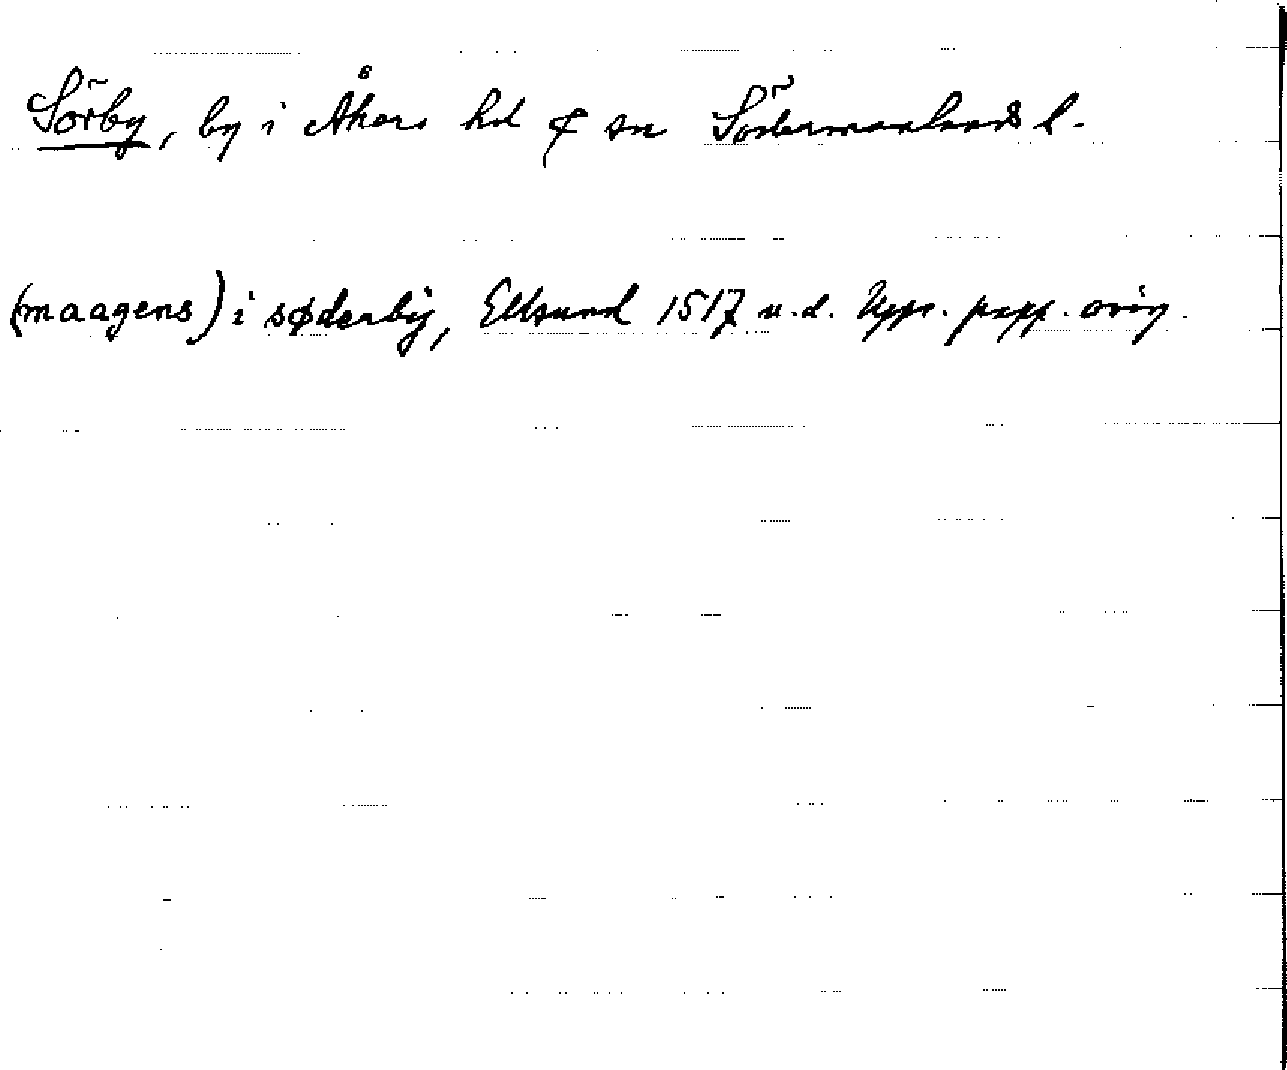 Sörby, by i Åkers hd & sn Södermanlands l.
(maagens) i søderby, Eldsund 1517 u.d. Upps. papp. orig.